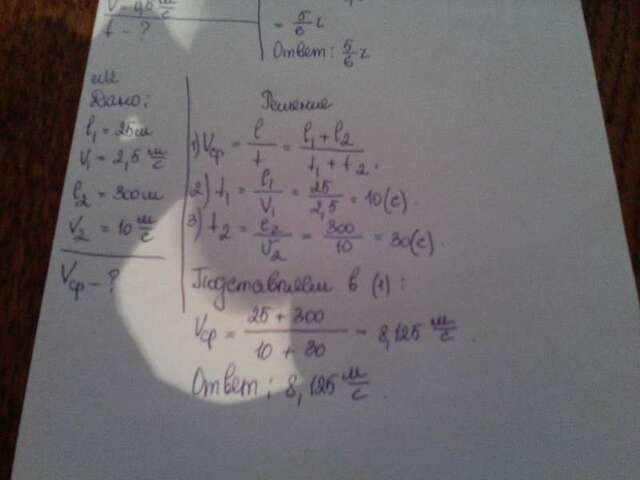 V = 0,5 м/с
t - ?
= 5/6 г
Ответ: 5/6 г
Дано:
l₁ = 25м
V₁ = 2,5 м/с
l₂ = 300м
V₂ = 10 м/с
Vср - ?
Решение
1) Vср = l/t = (l₁ + l₂)/(t₁ + t₂).
2) t₁ = l₁/V₁ = 25/2,5 = 10(с)
3) t₂ = l₂/V₂ = 300/10 = 30(с).
Подставляем в (1):
Vср = (25 + 300)/(10 + 30) = 8,125 м/с.
Ответ: 8,125 м/с.